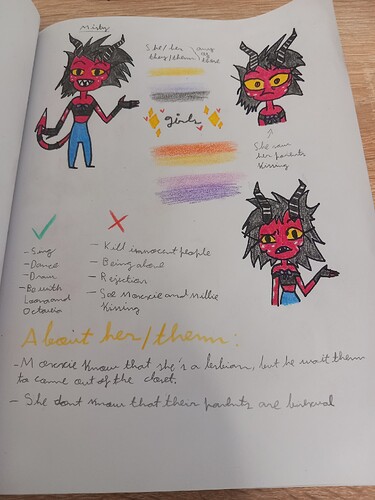 Misty
She/her
they/them
any of those
girls
She saw
her parents
kissing
- Sing
- Dance
- Draw
- Be with
Loona and
Octavia
- Kill innocent people
- Being alone
- Rejection
- See Moxxie and Millie
kissing
About her/them:
- Moxxie know that she's a lesbian, but he wait them
to came out of the closet.
- She dont know that their parents are bisexual